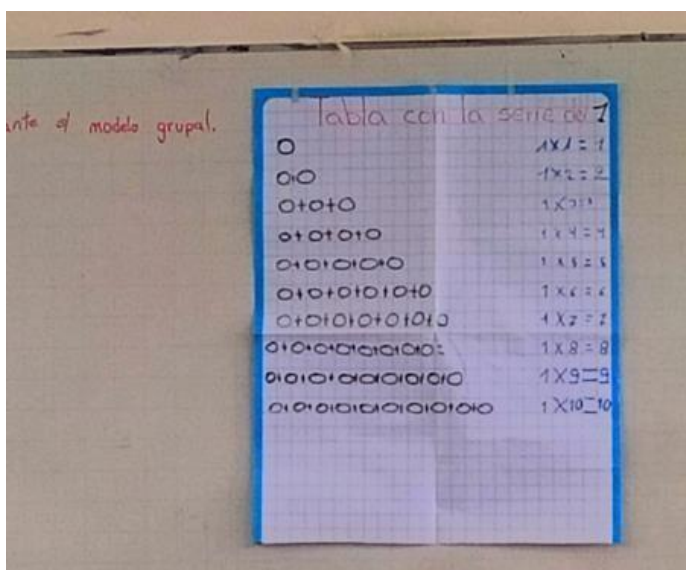 ante el modelo grupal.
Tabla con la serie del 1
O 1x1 = 1
O+O 1x2 = 2
O+O+O 1x3=
O+O+O+O 1x4=4
O+O+O+O+O 1x5=5
O+O+O+O+O+O 1x6=6
O+O+O+O+O+O+O
O+O+O+O+O+O+O+O= 1x8=8
O+O+O+O+O+O+O+O+O 1x9=9
O+O+O+O+O+O+O+O+O+O 1x10=10